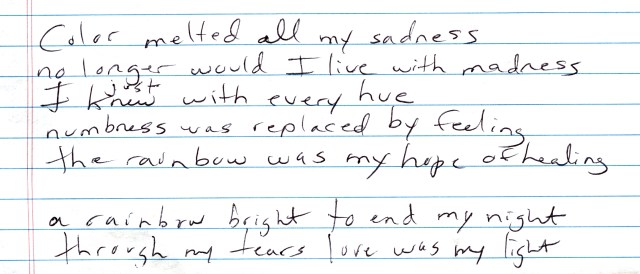 Color melted all my sadness
no longer would I live with madness
I just knew with every hue
numbness was replaced by feeling
the rainbow was my hope of healing
a rainbow bright to end my night
through my tears love was my light